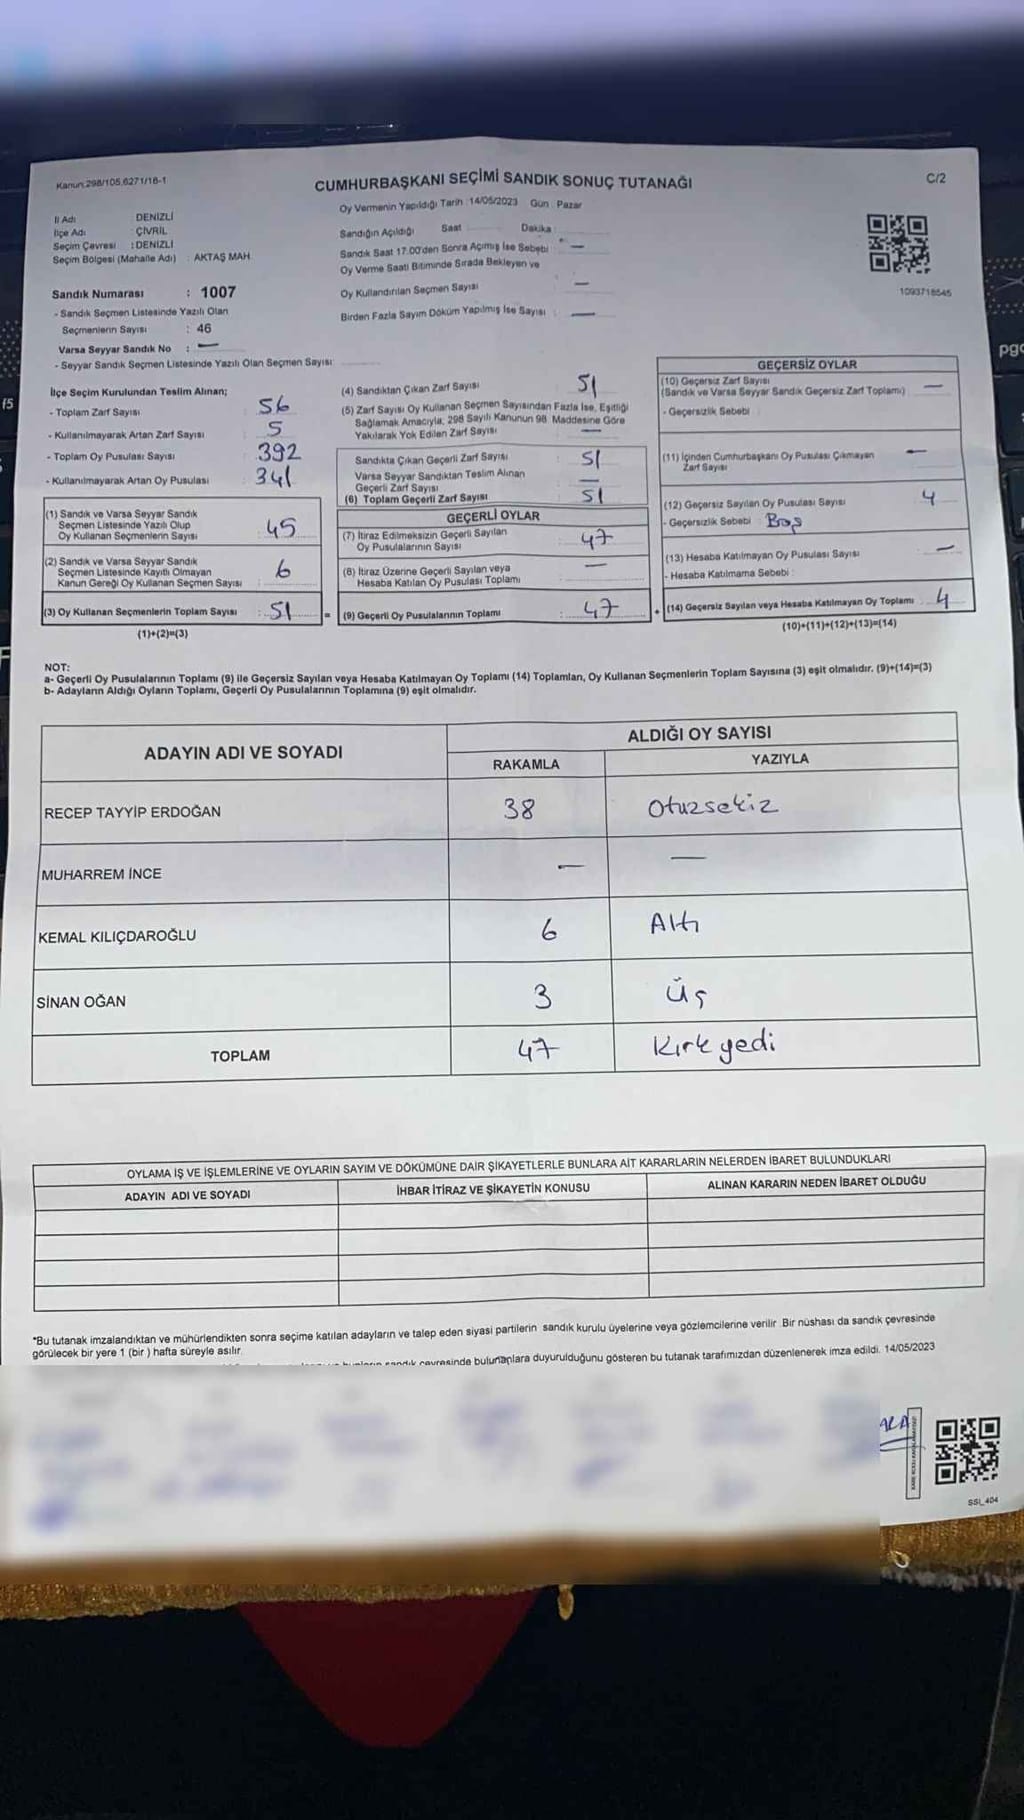 Kanun:298/105,6271/16-1
CUMHURBAŞKANI SEÇİMİ SANDIK SONUÇ TUTANAĞI
C/2
Oy Vermenin Yapıldığı Tarih 14/05/2023 Gün Pazar
İl Adı : DENİZLİ
İlçe Adı : ÇİVRİL
Seçim Çevresi : DENİZLİ
Seçim Bölgesi (Mahalle Adı) : AKTAŞ MAH.
Sandık Numarası : 1007
- Sandık Seçmen Listesinde Yazılı Olan
Seçmenlerin Sayısı : 46
Varsa Seyyar Sandık No : —
- Seyyar Sandık Seçmen Listesinde Yazılı Olan Seçmen Sayısı:
Sandığın Açıldığı Saat Dakika
Sandık Saat 17:00'den Sonra Açımış İse Sebebi : —
Oy Verme Saati Bitiminde Sırada Bekleyen ve
Oy Kullandırılan Seçmen Sayısı —
Birden Fazla Sayım Döküm Yapılmış İse Sayısı : —
1093718545
İlçe Seçim Kurulundan Teslim Alınan;
- Toplam Zarf Sayısı 56
- Kullanılmayarak Artan Zarf Sayısı 5
- Toplam Oy Pusulası Sayısı 392
- Kullanılmayarak Artan Oy Pusulası 341
(1) Sandık ve Varsa Seyyar Sandık
Seçmen Listesinde Yazılı Olup
Oy Kullanan Seçmenlerin Sayısı : 45
(2) Sandık ve Varsa Seyyar Sandık
Seçmen Listesinde Kayıtlı Olmayan
Kanun Gereği Oy Kullanan Seçmen Sayısı : 6
(3) Oy Kullanan Seçmenlerin Toplam Sayısı : 51 =
(1)+(2)=(3)
(4) Sandıktan Çıkan Zarf Sayısı 51
(5) Zarf Sayısı Oy Kullanan Seçmen Sayısından Fazla İse, Eşitliği
Sağlamak Amacıyla, 298 Sayılı Kanunun 98. Maddesine Göre
Yakılarak Yok Edilen Zarf Sayısı —
Sandıkta Çıkan Geçerli Zarf Sayısı 51
Varsa Seyyar Sandıktan Teslim Alınan
Geçerli Zarf Sayısı —
(6) Toplam Geçerli Zarf Sayısı 51
GEÇERLİ OYLAR
(7) İtiraz Edilmeksizin Geçerli Sayılan
Oy Pusulalarının Sayısı 47
(8) İtiraz Üzerine Geçerli Sayılan veya
Hesaba Katılan Oy Pusulası Toplamı —
(9) Geçerli Oy Pusulalarının Toplamı : 47 +
GEÇERSİZ OYLAR
(10) Geçersiz Zarf Sayısı
(Sandık ve Varsa Seyyar Sandık Geçersiz Zarf Toplamı) —
- Geçersizlik Sebebi
(11) İçinden Cumhurbaşkanı Oy Pusulası Çıkmayan
Zarf Sayısı —
(12) Geçersiz Sayılan Oy Pusulası Sayısı 4
- Geçersizlik Sebebi Boş
(13) Hesaba Katılmayan Oy Pusulası Sayısı —
- Hesaba Katılmama Sebebi :
(14) Geçersiz Sayılan veya Hesaba Katılmayan Oy Toplamı : 4
(10)+(11)+(12)+(13)=(14)
NOT:
a- Geçerli Oy Pusulalarının Toplamı (9) ile Geçersiz Sayılan veya Hesaba Katılmayan Oy Toplamı (14) Toplamları, Oy Kullanan Seçmenlerin Toplam Sayısına (3) eşit olmalıdır. (9)+(14)=(3)
b- Adayların Aldığı Oyların Toplamı, Geçerli Oy Pusulalarının Toplamına (9) eşit olmalıdır.
ADAYIN ADI VE SOYADI
ALDIĞI OY SAYISI
RAKAMLA YAZIYLA
RECEP TAYYİP ERDOĞAN 38 Otuzsekiz
MUHARREM İNCE — —
KEMAL KILIÇDAROĞLU 6 Altı
SİNAN OĞAN 3 Üç
TOPLAM 47 Kırk yedi
OYLAMA İŞ VE İŞLEMLERİNE VE OYLARIN SAYIM VE DÖKÜMÜNE DAİR ŞİKAYETLERLE BUNLARA AİT KARARLARIN NELERDEN İBARET BULUNDUKLARI
ADAYIN ADI VE SOYADI İHBAR İTİRAZ VE ŞİKAYETİN KONUSU ALINAN KARARIN NEDEN İBARET OLDUĞU
*Bu tutanak imzalandıktan ve mühürlendikten sonra seçime katılan adayların ve talep eden siyasi partilerin sandık kurulu üyelerine veya gözlemcilerine verilir. Bir nüshası da sandık çevresinde
görülecek bir yere 1 (bir ) hafta süreyle asılır.
sandık çevresinde bulunanlara duyurulduğunu gösteren bu tutanak tarafımızdan düzenlenerek imza edildi. 14/05/2023
SSI_404
f5
pgd